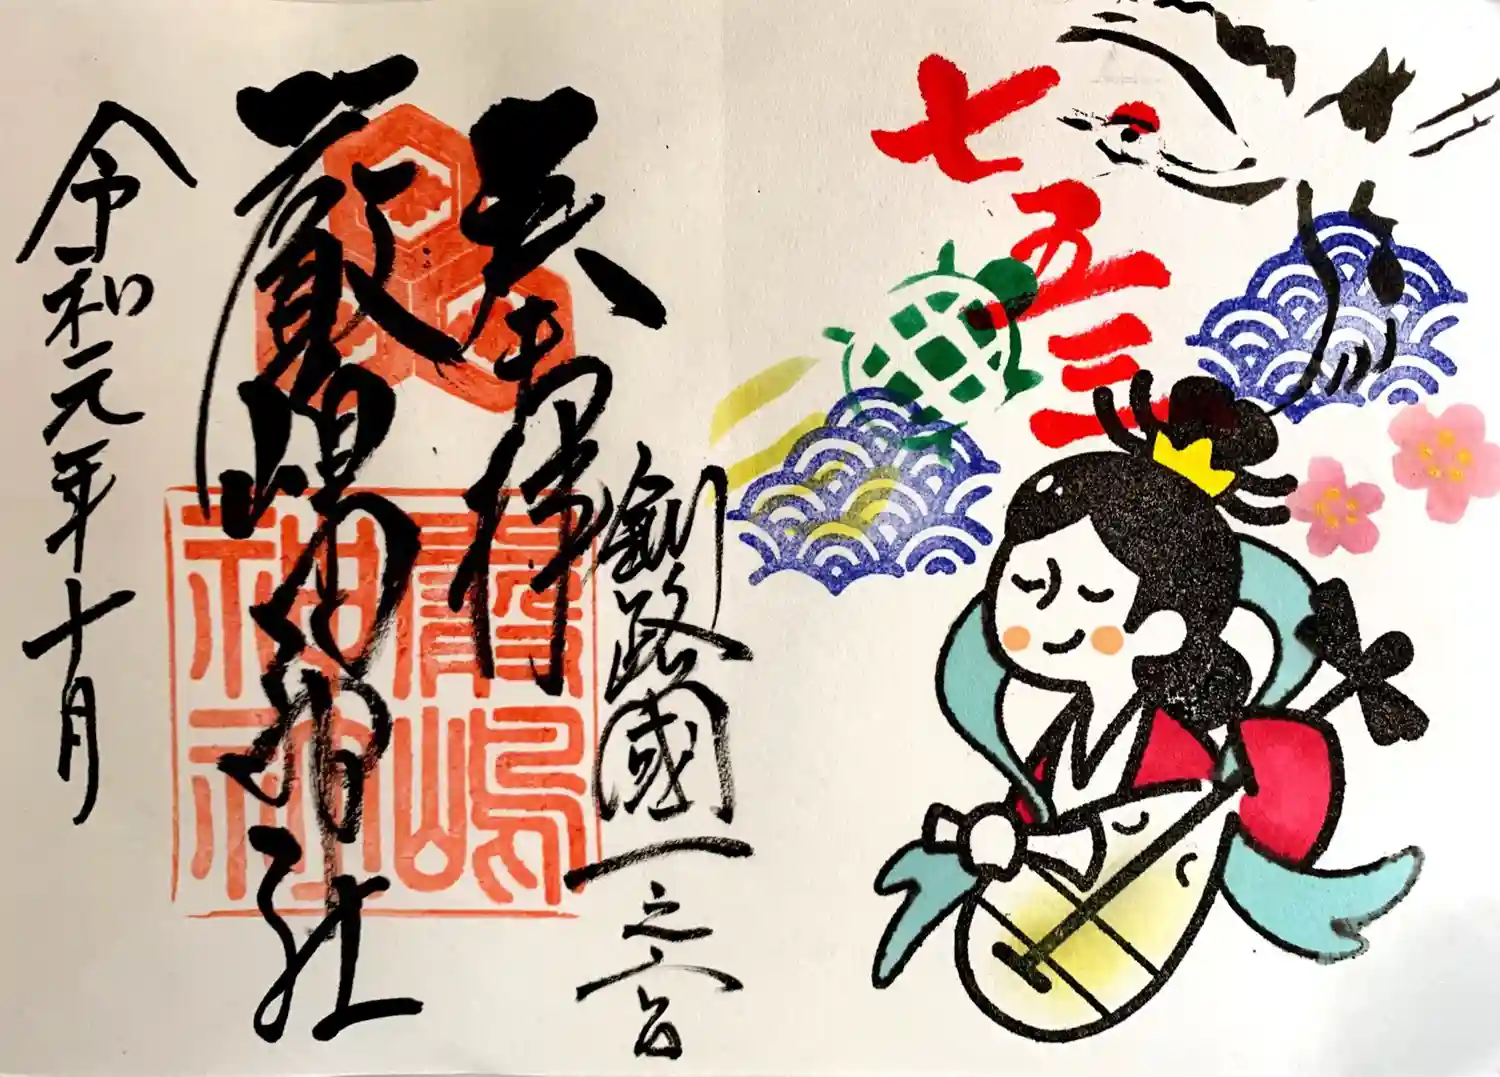 七五三
奉拝
釧路國一之宮
厳嶋神社
令和元年十月
嚴嶋神社